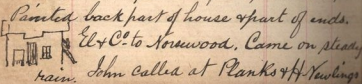 Painted back part of house & part of ends.
El & Co. to Norsewood. Came on steady
rain. John called at Planks & H. Newlings